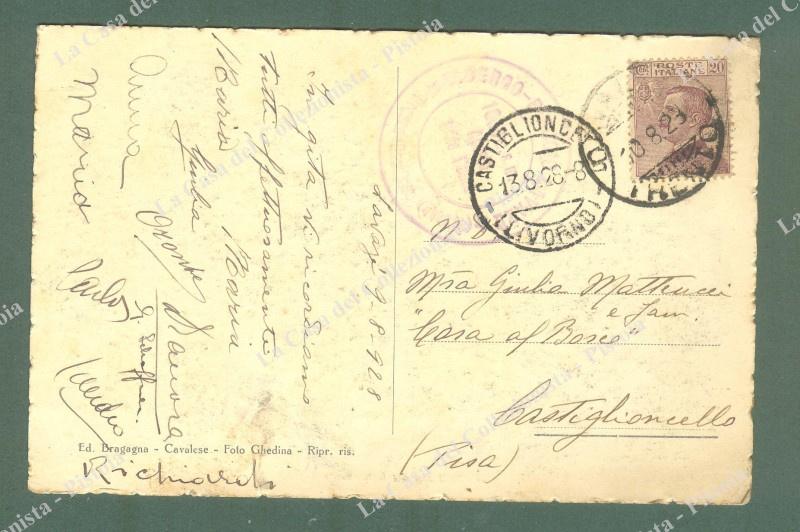 Lavazè 9-8-928
in gita vi ricordiamo
tutti affettuosamente
Maria
Maria
Giulia
Oronte
Anna
Mario
Carlo
Richiardi
Ed. Bragagna - Cavalese - Foto Ghedina - Ripr. ris.
POSTE
ITALIANE
20
TRENTO
CASTIGLIONCELLO
13.8.28-8
(LIVORNO)
Mia Giulia Matteucci
e fam.
"Casa al Bosco"
Castiglioncello
(Pisa)
La Casa del Collezionista - Pistoia